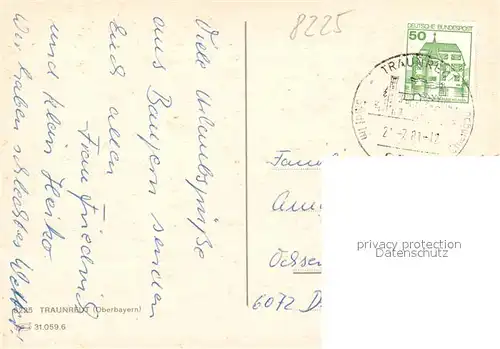 8225
DEUTSCHE BUNDESPOST
50
TRAUNREUT
21.-2.81-12
Viele Urlaubsgrüße
aus Bayern senden
Euch allen
Frau Friedrich
und klein Heiko
Wir haben schlechtes Wetter!
Famil
Ochse
6072 D
privacy protection
Datenschutz
8225 TRAUNREUT (Oberbayern)
31.059.6